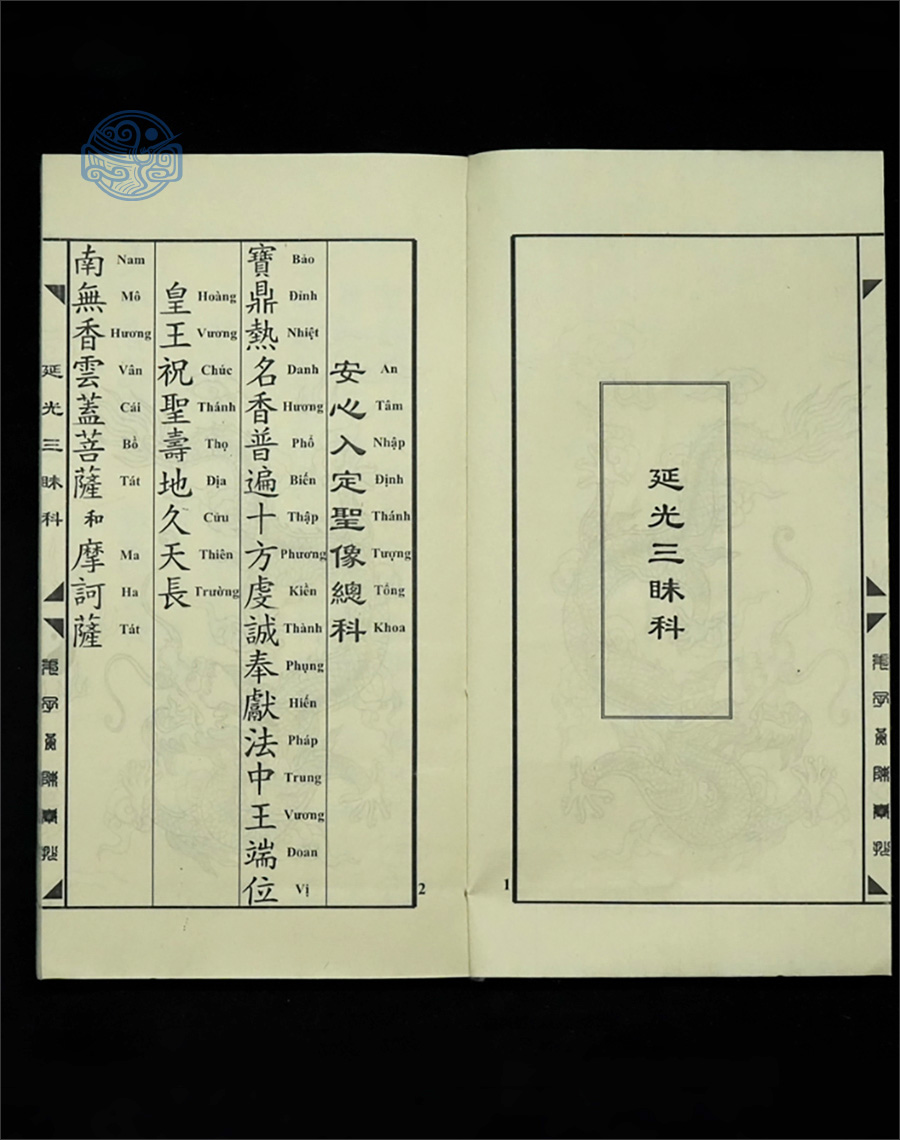 延光三眛科
1
安心入定聖像總科
An Tâm Nhập Định Thánh Tượng Tổng Khoa
寶鼎熱名香普遍十方虔誠奉獻法中王端位
Bảo Đỉnh Nhiệt Danh Hương Phổ Biến Thập Phương Kiền Thành Phụng Hiến Pháp Trung Vương Đoan Vị
皇王祝聖壽地久天長
Hoàng Vương Chúc Thánh Thọ Địa Cửu Thiên Trường
南無香雲蓋菩薩和摩訶薩
Nam Mô Hương Vân Cái Bồ Tát Ma Ha Tát
延光三眛科
2